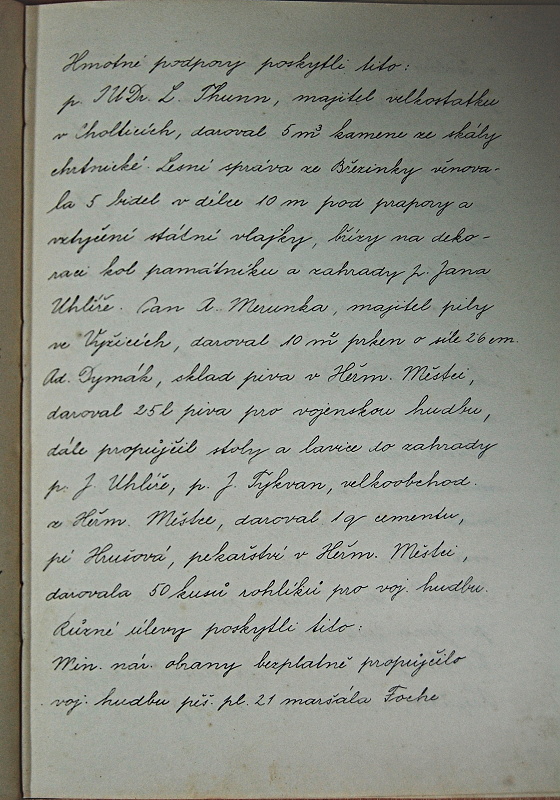 Hmotné podpory poskytli tito:
p. JUDr. L. Thunn, majitel velkostatku
v Cholticích, daroval 5 m³ kamene ze skály
chrtnické. Lesní správa ze Březinky věnova-
la 5 bidel v délce 10 m pod prapory a
vztyčení státní vlajky, břízy na deko-
raci kol památníku a zahrady p. Jana
Uhlíře. Pan A. Merunka, majitel pily
ve Vyžicích, daroval 10 m² prken o síle 26 cm.
Ad. Dymák, sklad piva v Heřm. Městci,
daroval 25 l piva pro vojenskou hudbu,
dále propůjčil stoly a lavice do zahrady
p. J. Uhlíře, p. J. Tykvan, velkoobchod.
z Heřm. Městce, daroval 1 q cementu,
pí Hrušová, pekařství v Heřm. Městci,
darovala 50 kusů rohlíků pro voj. hudbu.
Různé úlevy poskytli tito:
Min. nár. obrany bezplatně propůjčilo
voj. hudbu pěš. pl. 21 maršála Foche